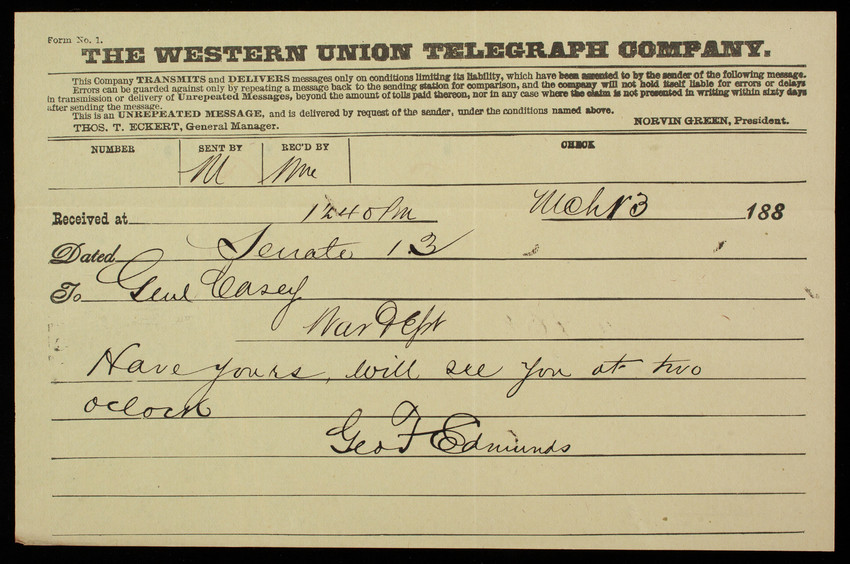 Form No. 1.
THE WESTERN UNION TELEGRAPH COMPANY.
This Company TRANSMITS and DELIVERS messages only on conditions limiting its liability, which have been assented to by the sender of the following message.
Errors can be guarded against only by repeating a message back to the sending station for comparison, and the company will not hold itself liable for errors or delays
in transmission or delivery of Unrepeated Messages, beyond the amount of tolls paid thereon, nor in any case where the claim is not presented in writing within sixty days
after sending the message.
This is an UNREPEATED MESSAGE, and is delivered by request of the sender, under the conditions named above.
THOS. T. ECKERT, General Manager. NORVIN GREEN, President.
NUMBER SENT BY REC'D BY CHECK
M
Received at 1240 Pm Mch 13 188
Dated Senate 13
To Genl Casey
War Dept
Have yours, will see you at two
oclock
Geo F Edmunds